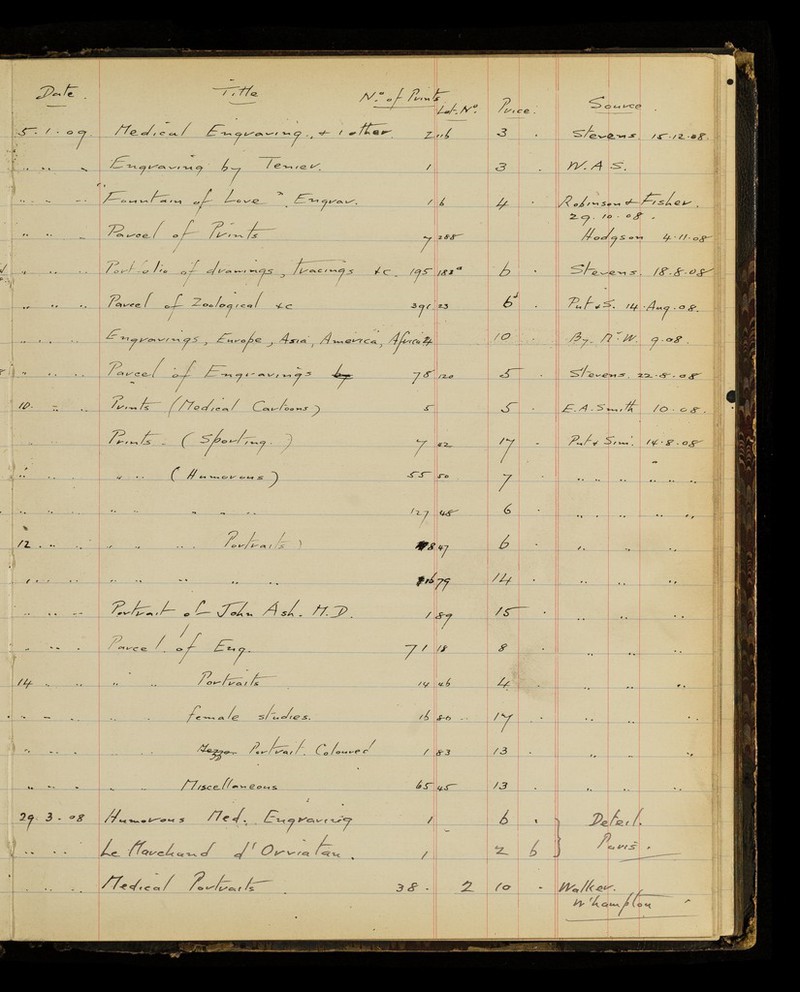 Date. Title Nº of Prints Lot. Nº. Price. Source.
5.1.09 Medical Engraving. + 1 other. 2 116 3 . Stevens. 15.12.08.
" " " Engraving by Tenier. 1 3 . W.A.S.
" " " "Fountain of Love". Engrav. 1 6 4 . Robinson & Fisher.
29.10.08.
" " " Parcel of Prints 7 288 Hodgson 4.11.08
" " " Portfolio of drawings, tracings &c. 195 182ª 6 . Stevens. 18.8.08
" " " Parcel of Zoological &c 391 23 6d . Put & S. 14.Aug.08.
" " " Engravings, Europe, Asia, America, Africa 10 . By. Mr. W. 9.08.
" " " Parcel of Engravings by 78 120 5 . Stevens. 22.8.08
10. " " Prints (Medical Cartoons) 5 5 . E.A. Smith 10.08.
" " Prints. (Sporting.) 7 62 17 . Put & Sim. 14.8.08
" " " " " (Humorous) 55 50 7 " " " " " "
" " " " " " " " 127 48 6 . " " " " "
12 " " " " " Portraits) 8 47 6 . " " "
" " " " " " " " 79 14 . " " "
" " " Portrait of John Ash. M.D. 1 89 15 . " " "
" " " Parcel of Eng. 71 18 8 . " " "
14 " " " " Portraits 14 46 4 . " " "
" " " " " female studies. 16 80 17 . " " "
" " " " " Portrait. Coloured 1 83 13 . " " "
" " " " " Miscellaneous 65 45 13 . " " "
29.3.08 Humorous Med. Engraving 1 6 . }
" " " Le Marchand d'Orviatan. 1 2 6 } Paris.
" " " Medical Portraits. 38. 2 10 . Walker.
W'hampton